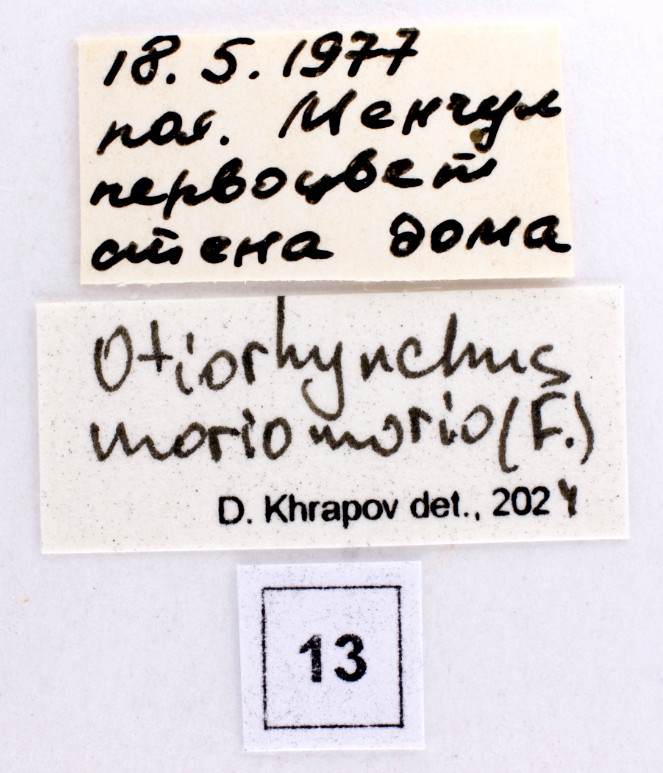 18. 5. 1977
пол. Менчул
первоцвет
стена дома
Otiorhynchus
morio morio (F.)
D. Khrapov det., 2024
13